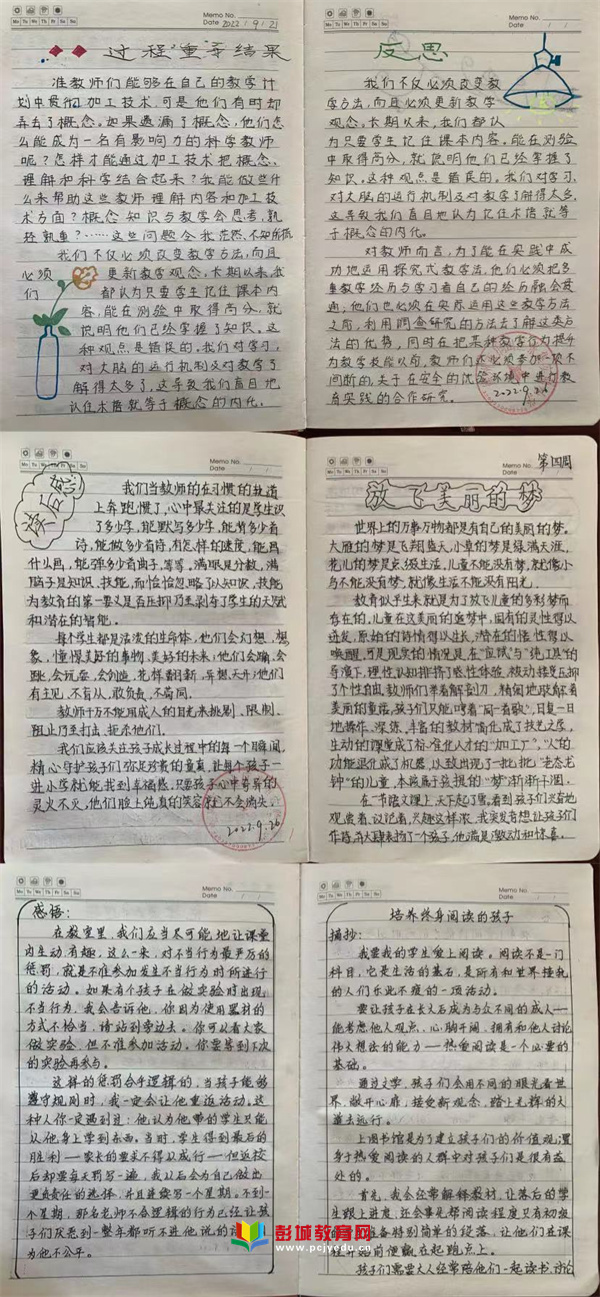 Memo No.
Mo Tu We Th Fr Sa Su
Date 2022/9/21
过程重于结果
准教师们能够在自己的教学计
划中贯彻加工技术,可是他们有时却
弄丢了概念。如果遗漏了概念,他们怎
么能成为一名有影响力的科学教师
呢?怎样才能通过加工技术把概念、
理解和科学结合起来?我能做些什
么来帮助这些教师理解内容和加工技
术方面?概念知识与教学会思考,孰
轻孰重?……这些问题令我茫然、不知所措
我们不仅必须改变教学方法,而且
必须更新教学观念,长期以来,我
们都认为只要学生记住课本内
容,能在测验中取得高分,就
说明他们已经掌握了知识。这
种观点是错误的。我们对学习,
对大脑的运行机制及对教学了
解得太多了,这导致我们盲目地
认住术语就等于概念的内化。
Memo No.
Mo Tu We Th Fr Sa Su
Date / /
反思
我们不仅必须改变教
学方法,而且必须更新教学
观念,长期以来,我们都认
为只要学生记住课本内容,能在测验
中取得高分,就说明他们已经掌握了
知识,这种观点是错误的。我们对学习,
对大脑的运行机制及对教学了解得太多,
这导致我们盲目地认为记住术语就等
于概念的内化。
对教师而言,为了能在实践中成
功地运用探究式教学法,他们必须把多
重教学经历与学习者自己的经历融会贯
通,他们也必须在实际运用这些教学方法
之前,利用调查研究的方法去了解这类方
法的优势,同时在把某种教学行为提升
为教学技能以前,教师们还必须参加一项不
间断的,关于在安全的优 环境中进行教
育实践的合作研究。
2022.9.26
Memo No.
Mo Tu We Th Fr Sa Su
Date / /
读后感
我们当教师的在习惯的轨道
上奔跑惯了,心中最关注的是学生识
了多少字,能默写多少字,能背多少首
诗,能做多少首诗,有怎样的速度,能画
什么画,能弹多少首曲子,等等。满眼是分数,满
脑子是知识、技能,而恰恰忽略了以知识、技能
为教育的第一要义是否压抑乃至剥夺了学生的天赋
和潜在的智能。
每个学生都是活泼的生命体,他们会幻想、想
象,憧憬美好的事物、美好的未来;他们会蹦、会
跳、会玩耍、会创造,花样翻新,异想天开;他们
有主见,不盲从,敢负责,不苟同。
教师千万不能用成人的目光来挑剔、限制、
阻止乃至打击、拒杀他们。
我们应该关注孩子成长过程中的每一个瞬间,
精心守护孩子们弥足珍贵的童真,让每个孩子一
进小学就能,我到幸福感,只要孩子心中奇异的
灵火不灭,他们脸上纯真的笑容就不会消失。
2022.9.26
Memo No. 第四周
Mo Tu We Th Fr Sa Su
Date / /
放飞美丽的梦
世界上的万事万物都是有自己的美丽的梦。
大雁的梦是飞翔蓝天,小草的梦是绿满天涯,
花儿的梦是点缀生活,儿童不能没有梦,就像小
鸟不能没有梦,就像生活不能没有阳光。
教育似乎生来就是为了放飞儿童的多彩梦而
存在的,儿童在这美丽的逐梦中,固有的灵性得以
迸发,原始的诗情得以生长,潜在的悟性得以
唤醒,可是现实的情况是在“应试”与“纯工具”的
导演下,理性认知排挤了感性体验,被动接受压抑
了个性自由,教师们举着解剖刀,精简地肢解着
美丽的童话,孩子们只能,唱着“同一首歌”,日复一日
地操作、演练,丰富的教材简化成了技艺之学,
生动的课堂成了标准化人才的“加工厂”,“人”的
功能退化成了机器,以致出现了一批批“老态龙
钟”的儿童,本该属于孩提的“梦”渐渐干涸。
在一节语文课上,天下起了雪,看到孩子们兴奋地
观赏着、议论着,兴趣这样浓,我突发奇想,让孩子们
作诗,并大肆表扬了一个孩子,他满是激动和惊喜。
Memo No.
Mo Tu We Th Fr Sa Su
Date / /
感悟:
在教室里,我们应当尽可能地让课堂
内生动、有趣,这么一来,对不当行为最严厉的
惩罚,就是不准参加发生不当行为时所进行
的活动。如果有个孩子在做实验时出现
不当行为,我会告诉他,你因为使用器材的
方式不恰当,请站到旁边去。你可以看大家
做实验,但不准参加活动。你要等到下次
的实验再参与。
这样的惩罚合乎逻辑的,当孩子能够
遵守规则时,我一定会让他重返活动。这
种人你一定遇到过:他认为他带的学生只能
从他身上学到东西。当时,学生得到最后的
胜利——家长的要求不得以成行——但返校
后却要每天罚写一遍,我以后会为自己做出
更负责任的选择,并且连续写一个星期。不到一
个星期,那名老师不合逻辑的行为已经让孩
子们厌恶到一整年都听不进他说的
为他不公平。
Memo No.
Mo Tu We Th Fr Sa Su
Date / /
培养终身阅读的孩子
摘抄:
我要我的学生爱上阅读。阅读不是一门
科目,它是生活的基石,是所有和世界接轨
的人们乐此不疲的一项活动。
要让孩子在长大后成为与众不同的成人——
能考虑他人观点、心胸开阔、拥有和他人讨论
伟大想法的能力——热爱阅读是一个必要的
基础。
通过文学,孩子们会用不同的眼光看世
界,敞开心扉,接受新观念,踏上光辉的大
道去远行。
上图书馆是为了建立孩子们的价值观,置
身于热爱阅读的人群中对孩子们是很有益
处的。
首先,我会经常解释教材,让落后的学
生跟上进度,还会事先帮阅读程度只有初级
准备特别简单的段落,让他们在课
开始前便 在起跑点上。
孩子们需要大人经常陪他们一起读书、讨论
彭城教育网
www.pcjyedu.cn